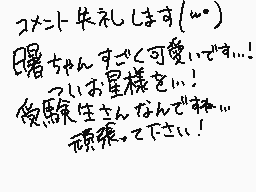 コメント失礼します(´ω`*)
曙ちゃんすごく可愛いです…!
ついお星様を…!
受験生さんなんですね…
頑張って下さい!